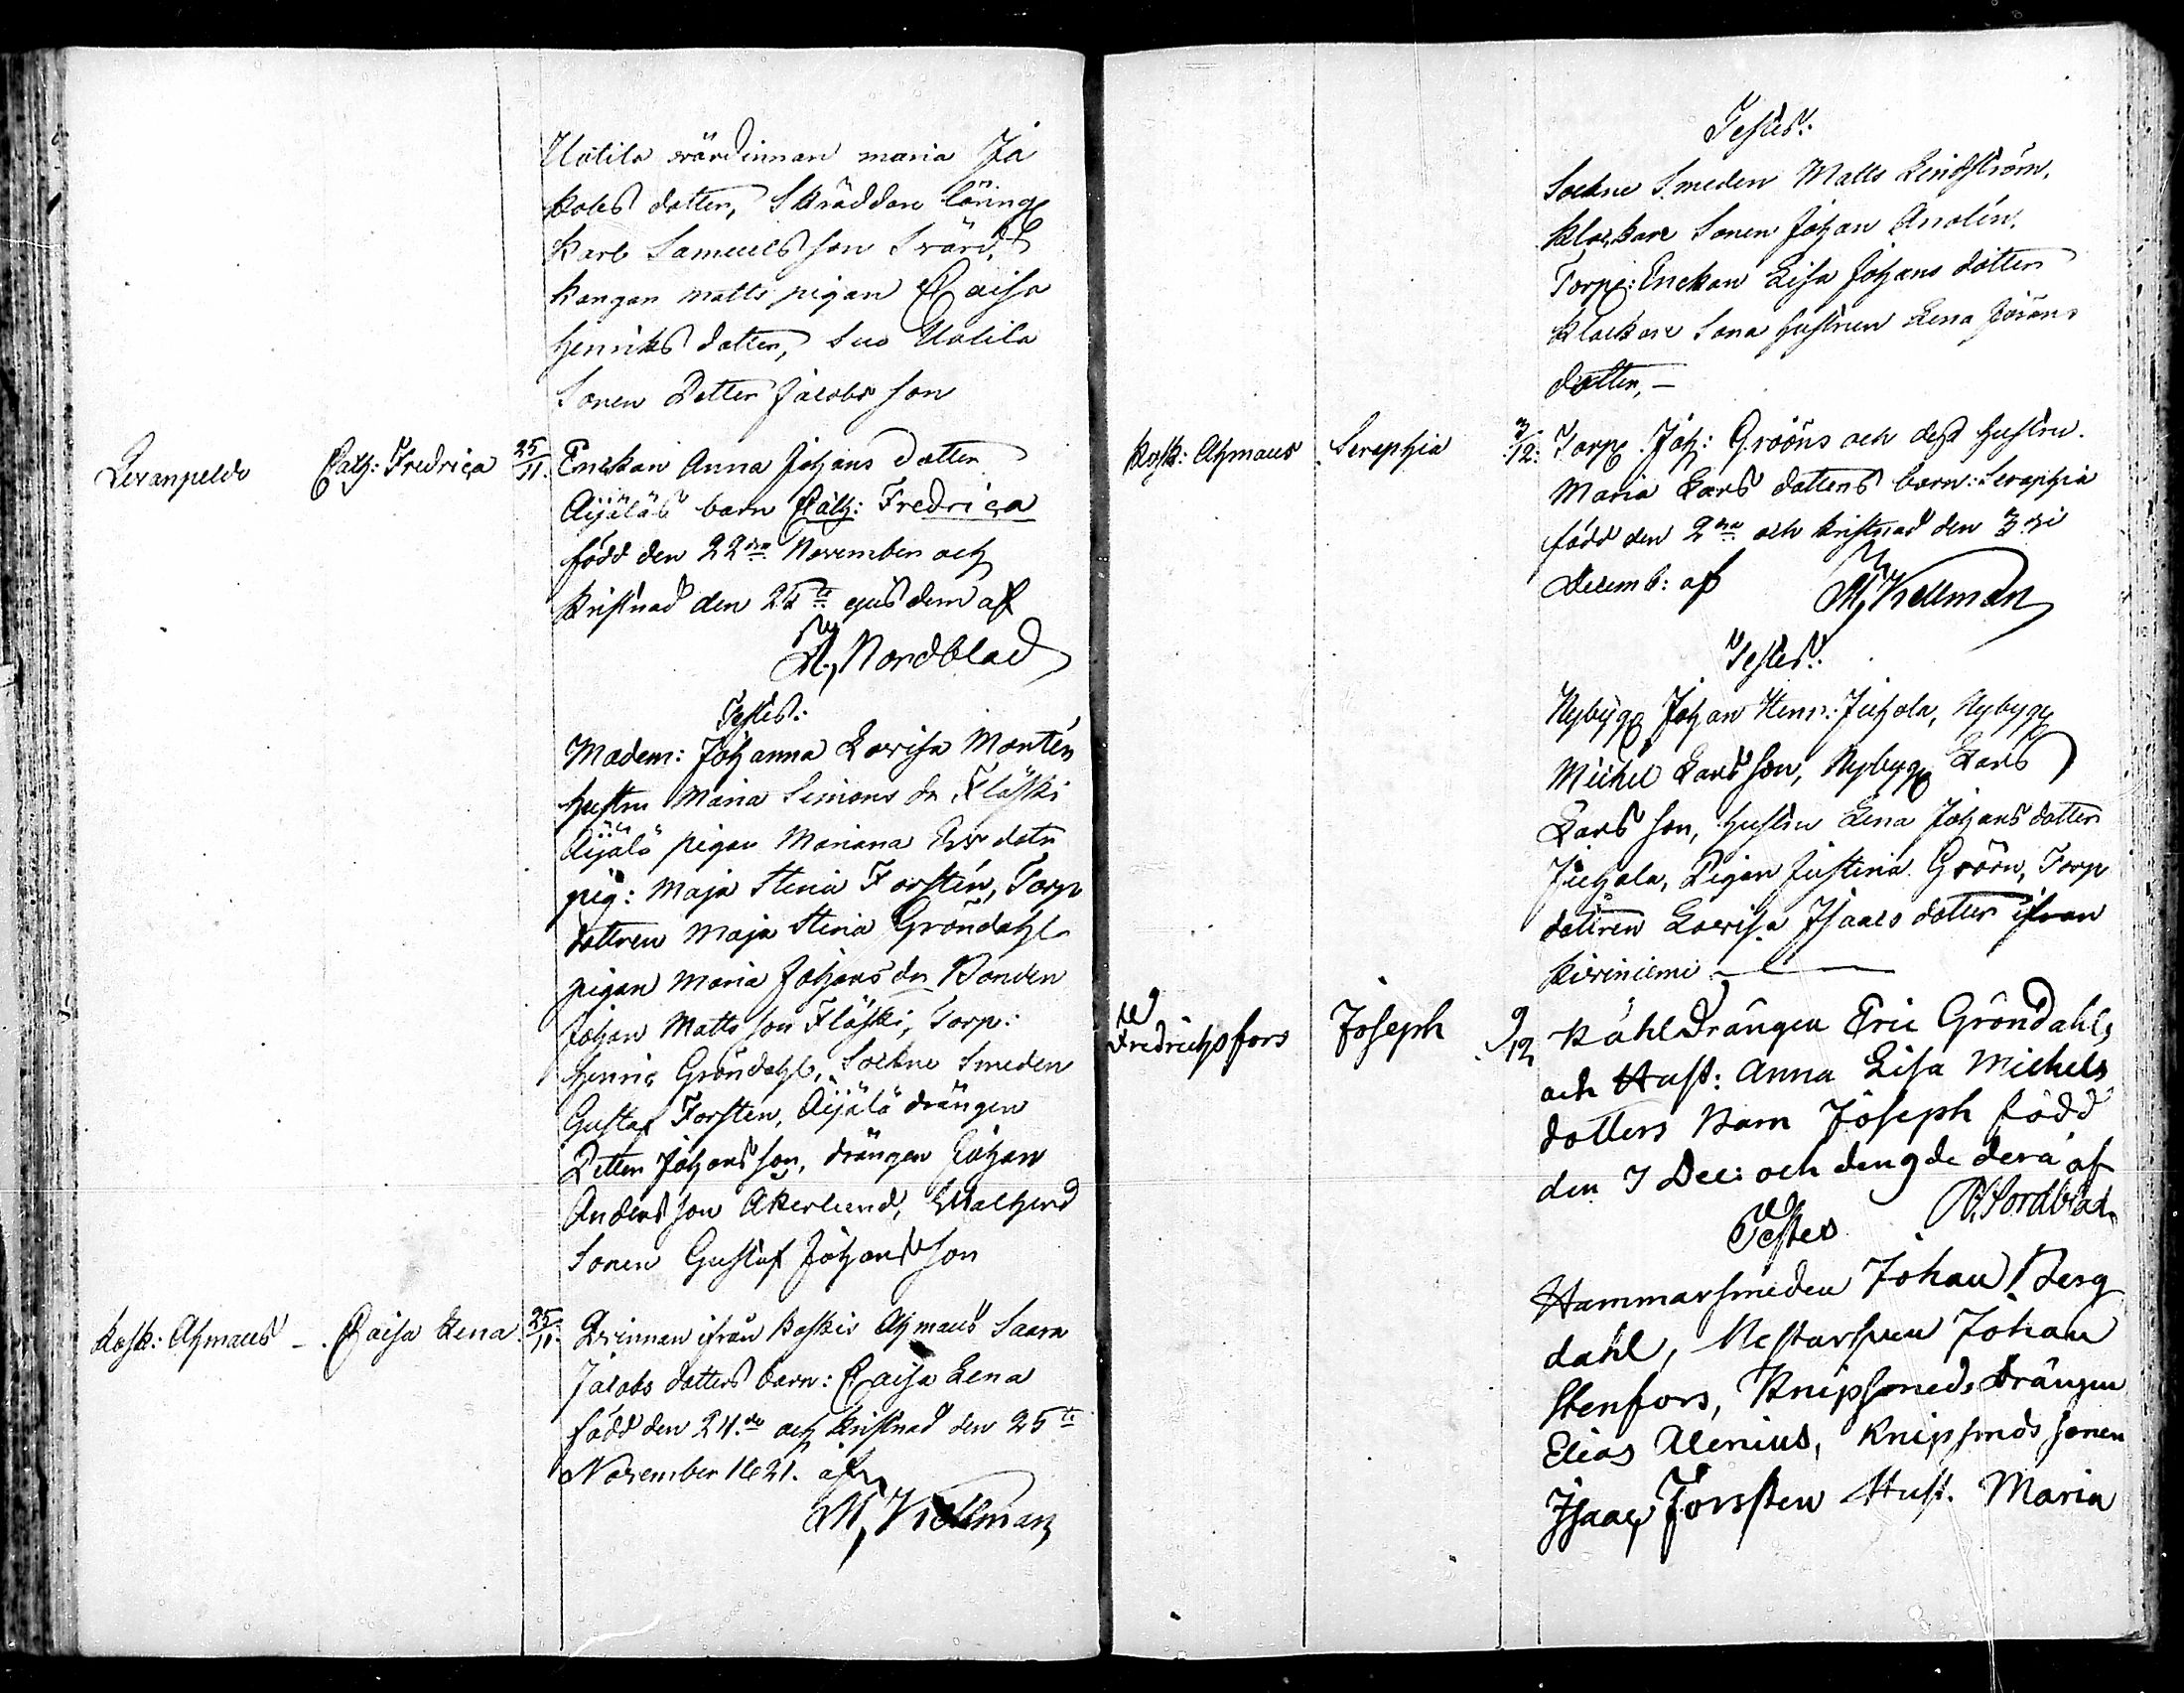 Uotila wärdinnan maria Ja
kobs dotter, Skräddare läring
Karl Samuels son Svärd,
Kangan matts pigan Caisa
Henriks dotter, Suo Uotila
Sonen Petter Jacobs son
Levanpeldo Cath: Fredrica 25/11. Enckan Anna Johans dotter
Äijäläs barn Cath: Fredrica
född den 22dra November och
Kristnad den 25te ejusdem af
A, Nordblad
Testes:
Madem: Johanna Lovisa Montén
hustru Maria Simons dr Fläski
Äijälä pigan Mariana Ers dotr
pig: Maja Stina Forstén, Torp
dottren Maja Stina Gröndahl
pigan Maria Johans dr Bonden
Johan Matts son Fläski, Torp:
Henric Gröndahl, Sockne Smeden
Gustaf Forsten, Äijälä drängen
Petter Johans son, drängen Johan
Anders son Akerlund,
Sonen Gustaf Johans son
Kosk: Ahmaus - Caisa Lena 25/11. Qvinnan ifrån Koskis Ahmaus Saara
Jacobs dotters barn: Caisa Lena
född den 24.de och Kristnad den 25te
November 1821. af
M, Kellman
Testes:
Sockne Smeden Matts Lindström,
Klockare Sonen Johan Anolin,
Torp: Enckan Lisa Johans dotter
Klockare Sona hustrun Lena Jörans
dotter, -
Kosk: Ahmaus Seraphia 3/12: Torp Joh: Grööns och dess hustru
Maria Lars dotters barn: Seraphia
född den 2dra och kristnad den 3dje
Decemb: af M, Kellman
Testes:
Nybygg Johan Henr: Juhola, Nybygg
Michel Lars son, Nybygg Lars
Lars son, hustru Lena Johans dotter
Juhola, Pigan Justina Gröön, Torp
dottren Lovisa Isaacs dotter ifran
Kiviniemi
Fredrichsfors Joseph 9/12 Kåhldrängen Eric Gröndahls
och Hust: Anna Lisa Michels
dotters Barn Joseph född
den 7 Dec: och den 9de derå af
Testes A, Nordblad
Hammarsmeden Johan Berg
dahl, Mestarsven Johan
Stenfors, Knipsmeds drängen
Elias Alenius, Knipsmds sonen
Isaac Forssten Hust. Maria